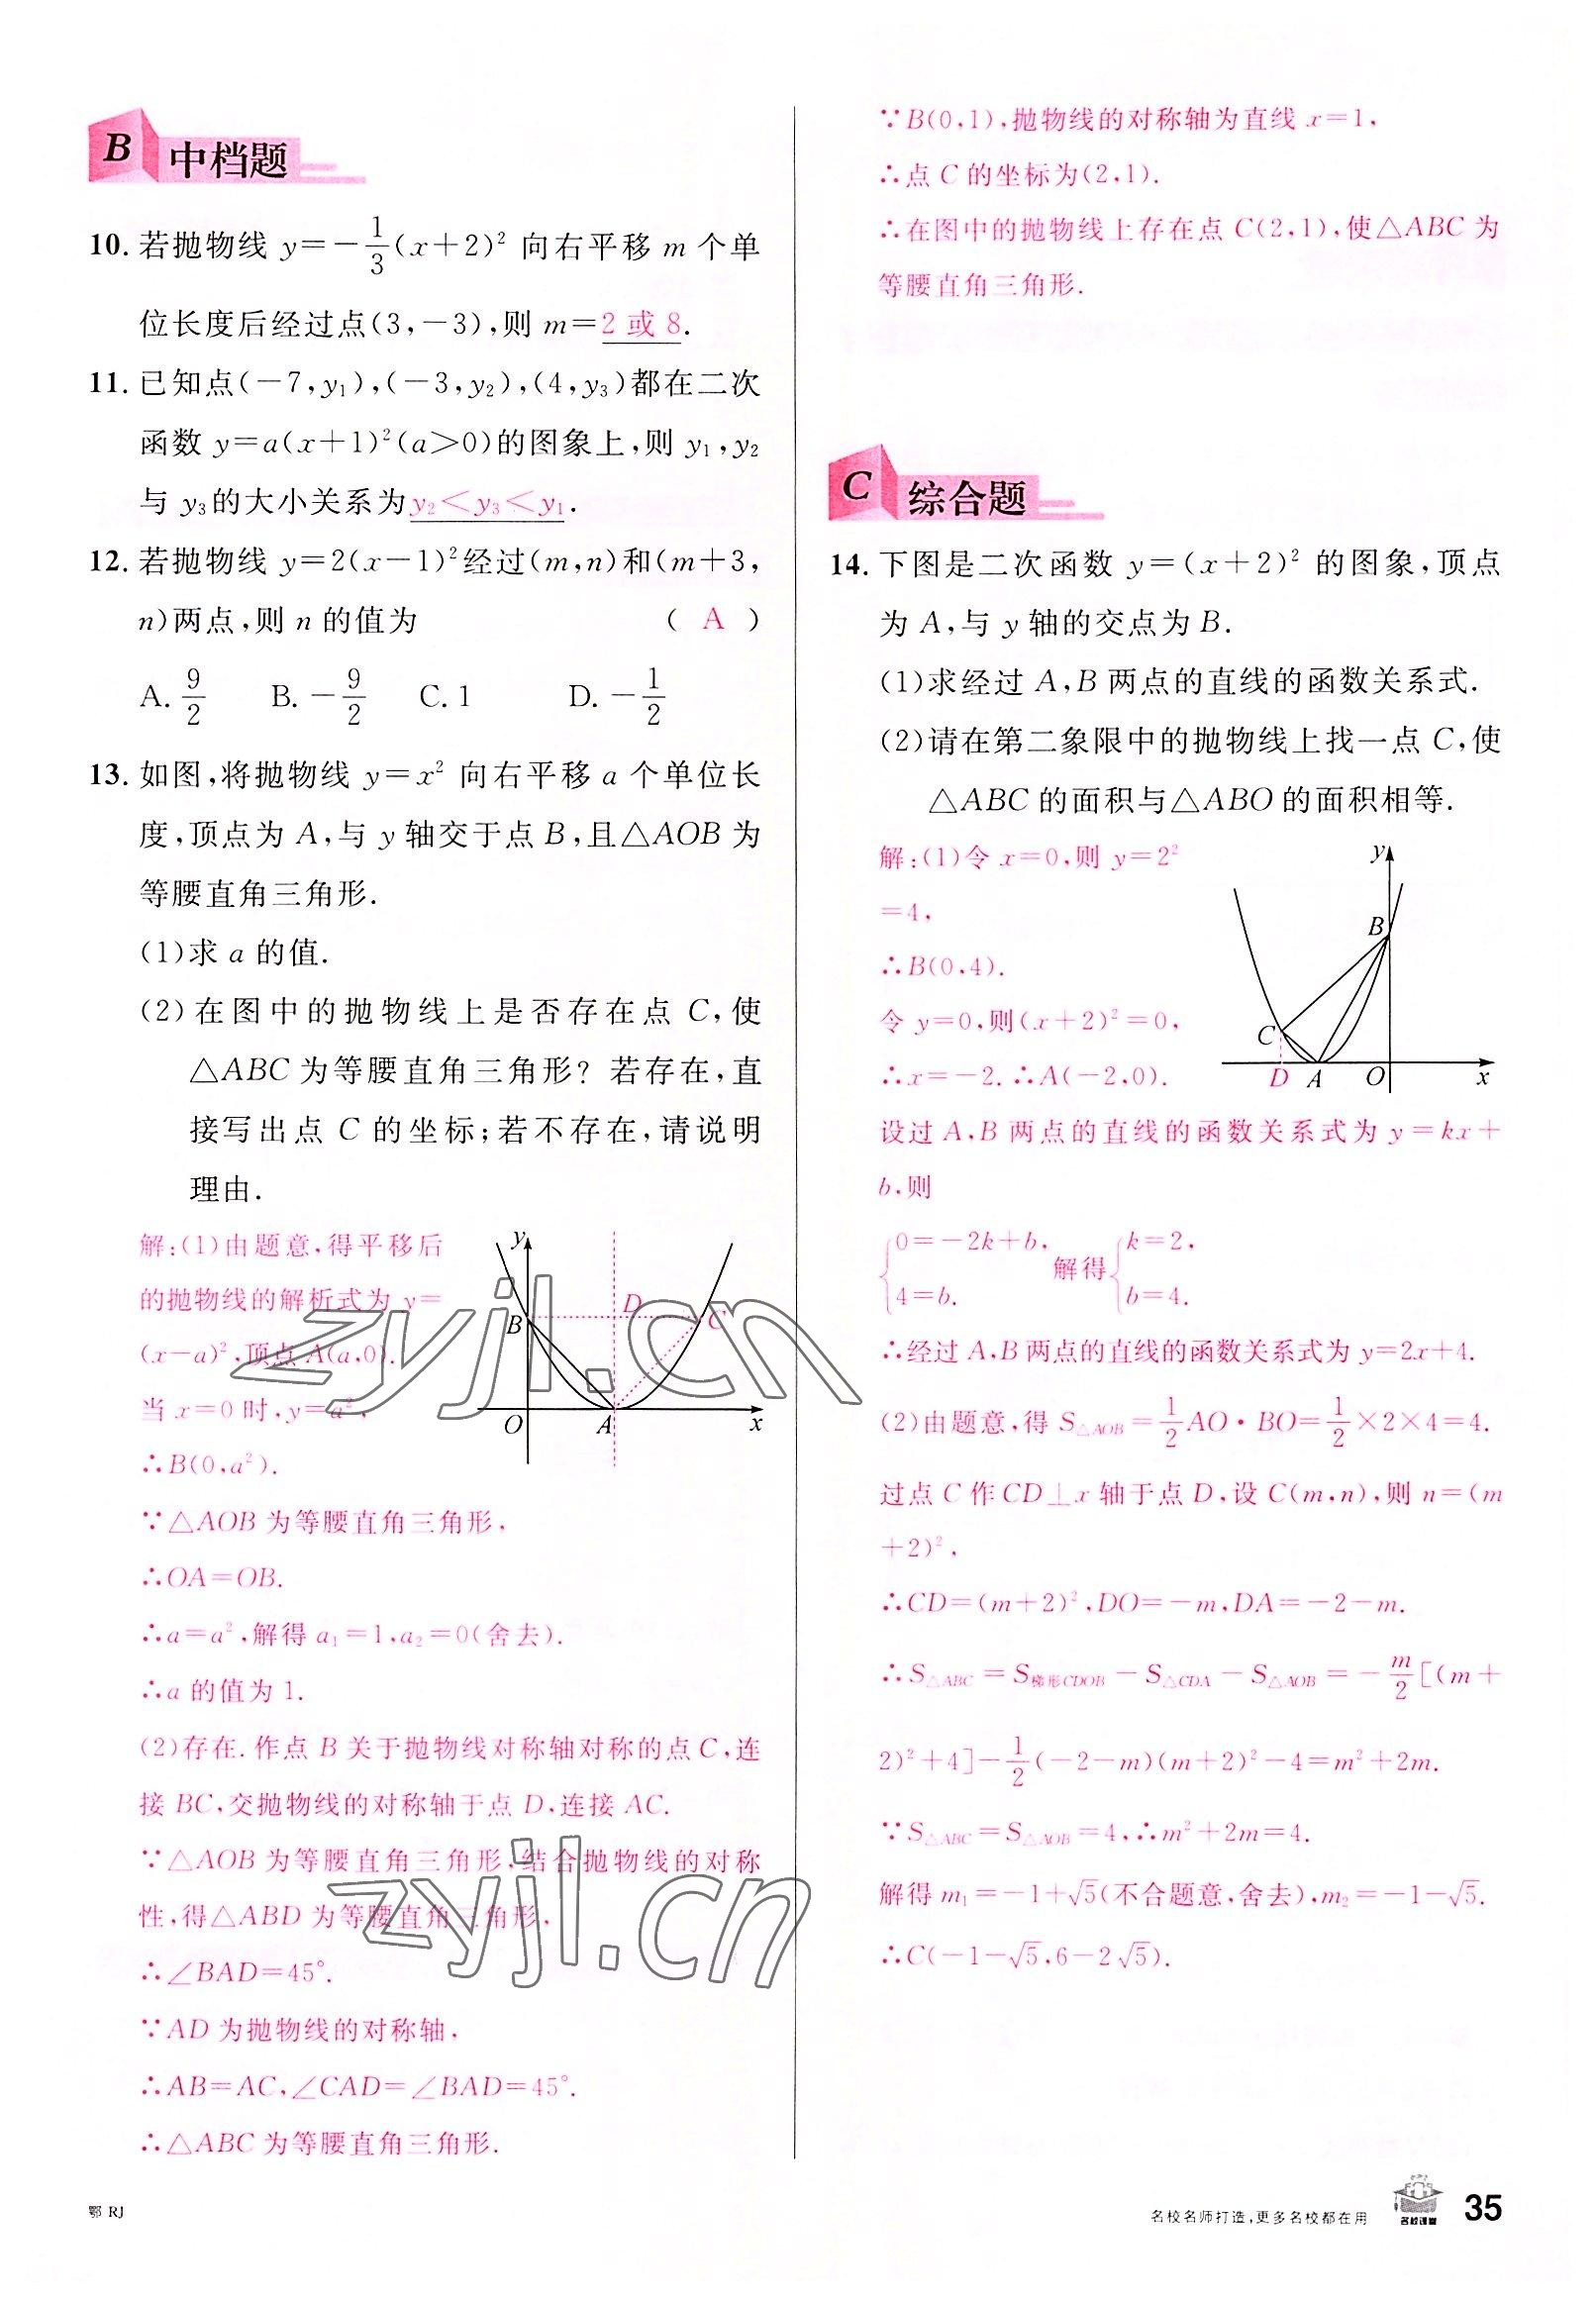 B 中档题
10. 若抛物线 y=-1/3(x+2)² 向右平移 m 个单
位长度后经过点(3,-3),则 m=2 或 8.
11. 已知点(-7,y₁),(-3,y₂),(4,y₃)都在二次
函数 y=a(x+1)²(a>0)的图象上,则 y₁,y₂
与 y₃的大小关系为y₂<y₃<y₁.
12. 若抛物线 y=2(x-1)²经过(m,n)和(m+3,
n)两点,则 n 的值为 ( A )
A. 9/2 B. -9/2 C. 1 D. -1/2
13. 如图,将抛物线 y=x² 向右平移 a 个单位长
度,顶点为 A,与 y 轴交于点 B,且△AOB 为
等腰直角三角形.
(1)求 a 的值.
(2)在图中的抛物线上是否存在点 C,使
△ABC 为等腰直角三角形?若存在,直
接写出点 C 的坐标;若不存在,请说明
理由.
解:(1)由题意,得平移后
的抛物线的解析式为 y=
(x-a)²,顶点 A(a,0).
当 x=0 时,y=a²,
∴B(0,a²).
∵△AOB 为等腰直角三角形,
∴OA=OB.
∴a=a²,解得 a₁=1,a₂=0(舍去).
∴a 的值为 1.
(2)存在. 作点 B 关于抛物线对称轴对称的点 C,连
接 BC,交抛物线的对称轴于点 D,连接 AC.
∵△AOB 为等腰直角三角形,结合抛物线的对称
性,得△ABD 为等腰直角三角形,
∴∠BAD=45°.
∵AD 为抛物线的对称轴,
∴AB=AC,∠CAD=∠BAD=45°.
∴△ABC 为等腰直角三角形.
y
B
D
C
O
A
x
zyjl.cn
zyjl.cn
∵B(0,1),抛物线的对称轴为直线 x=1,
∴点 C 的坐标为(2,1).
∴在图中的抛物线上存在点 C(2,1),使△ABC 为
等腰直角三角形.
C 综合题
14. 下图是二次函数 y=(x+2)² 的图象,顶点
为 A,与 y 轴的交点为 B.
(1)求经过 A,B 两点的直线的函数关系式.
(2)请在第二象限中的抛物线上找一点 C,使
△ABC 的面积与△ABO 的面积相等.
解:(1)令 x=0,则 y=2²
=4,
∴B(0,4).
令 y=0,则(x+2)²=0,
∴x=-2. ∴A(-2,0).
y
B
C
D
A
O
x
设过 A,B 两点的直线的函数关系式为 y=kx+
b,则
{0=-2k+b, 4=b. 解得{k=2, b=4.
∴经过 A,B 两点的直线的函数关系式为 y=2x+4.
(2)由题意,得 S△AOB=1/2AO·BO=1/2×2×4=4.
过点 C 作 CD⊥x 轴于点 D,设 C(m,n),则 n=(m
+2)²,
∴CD=(m+2)²,DO=-m,DA=-2-m.
∴S△ABC=S梯形CDOB-S△CDA-S△AOB=-m/2[(m+
2)²+4]-1/2(-2-m)(m+2)²-4=m²+2m.
∵S△ABC=S△AOB=4,∴m²+2m=4.
解得 m₁=-1+√5(不合题意,舍去),m₂=-1-√5.
∴C(-1-√5,6-2√5).
鄂 RJ
名校名师打造,更多名校都在用
名校课堂
35